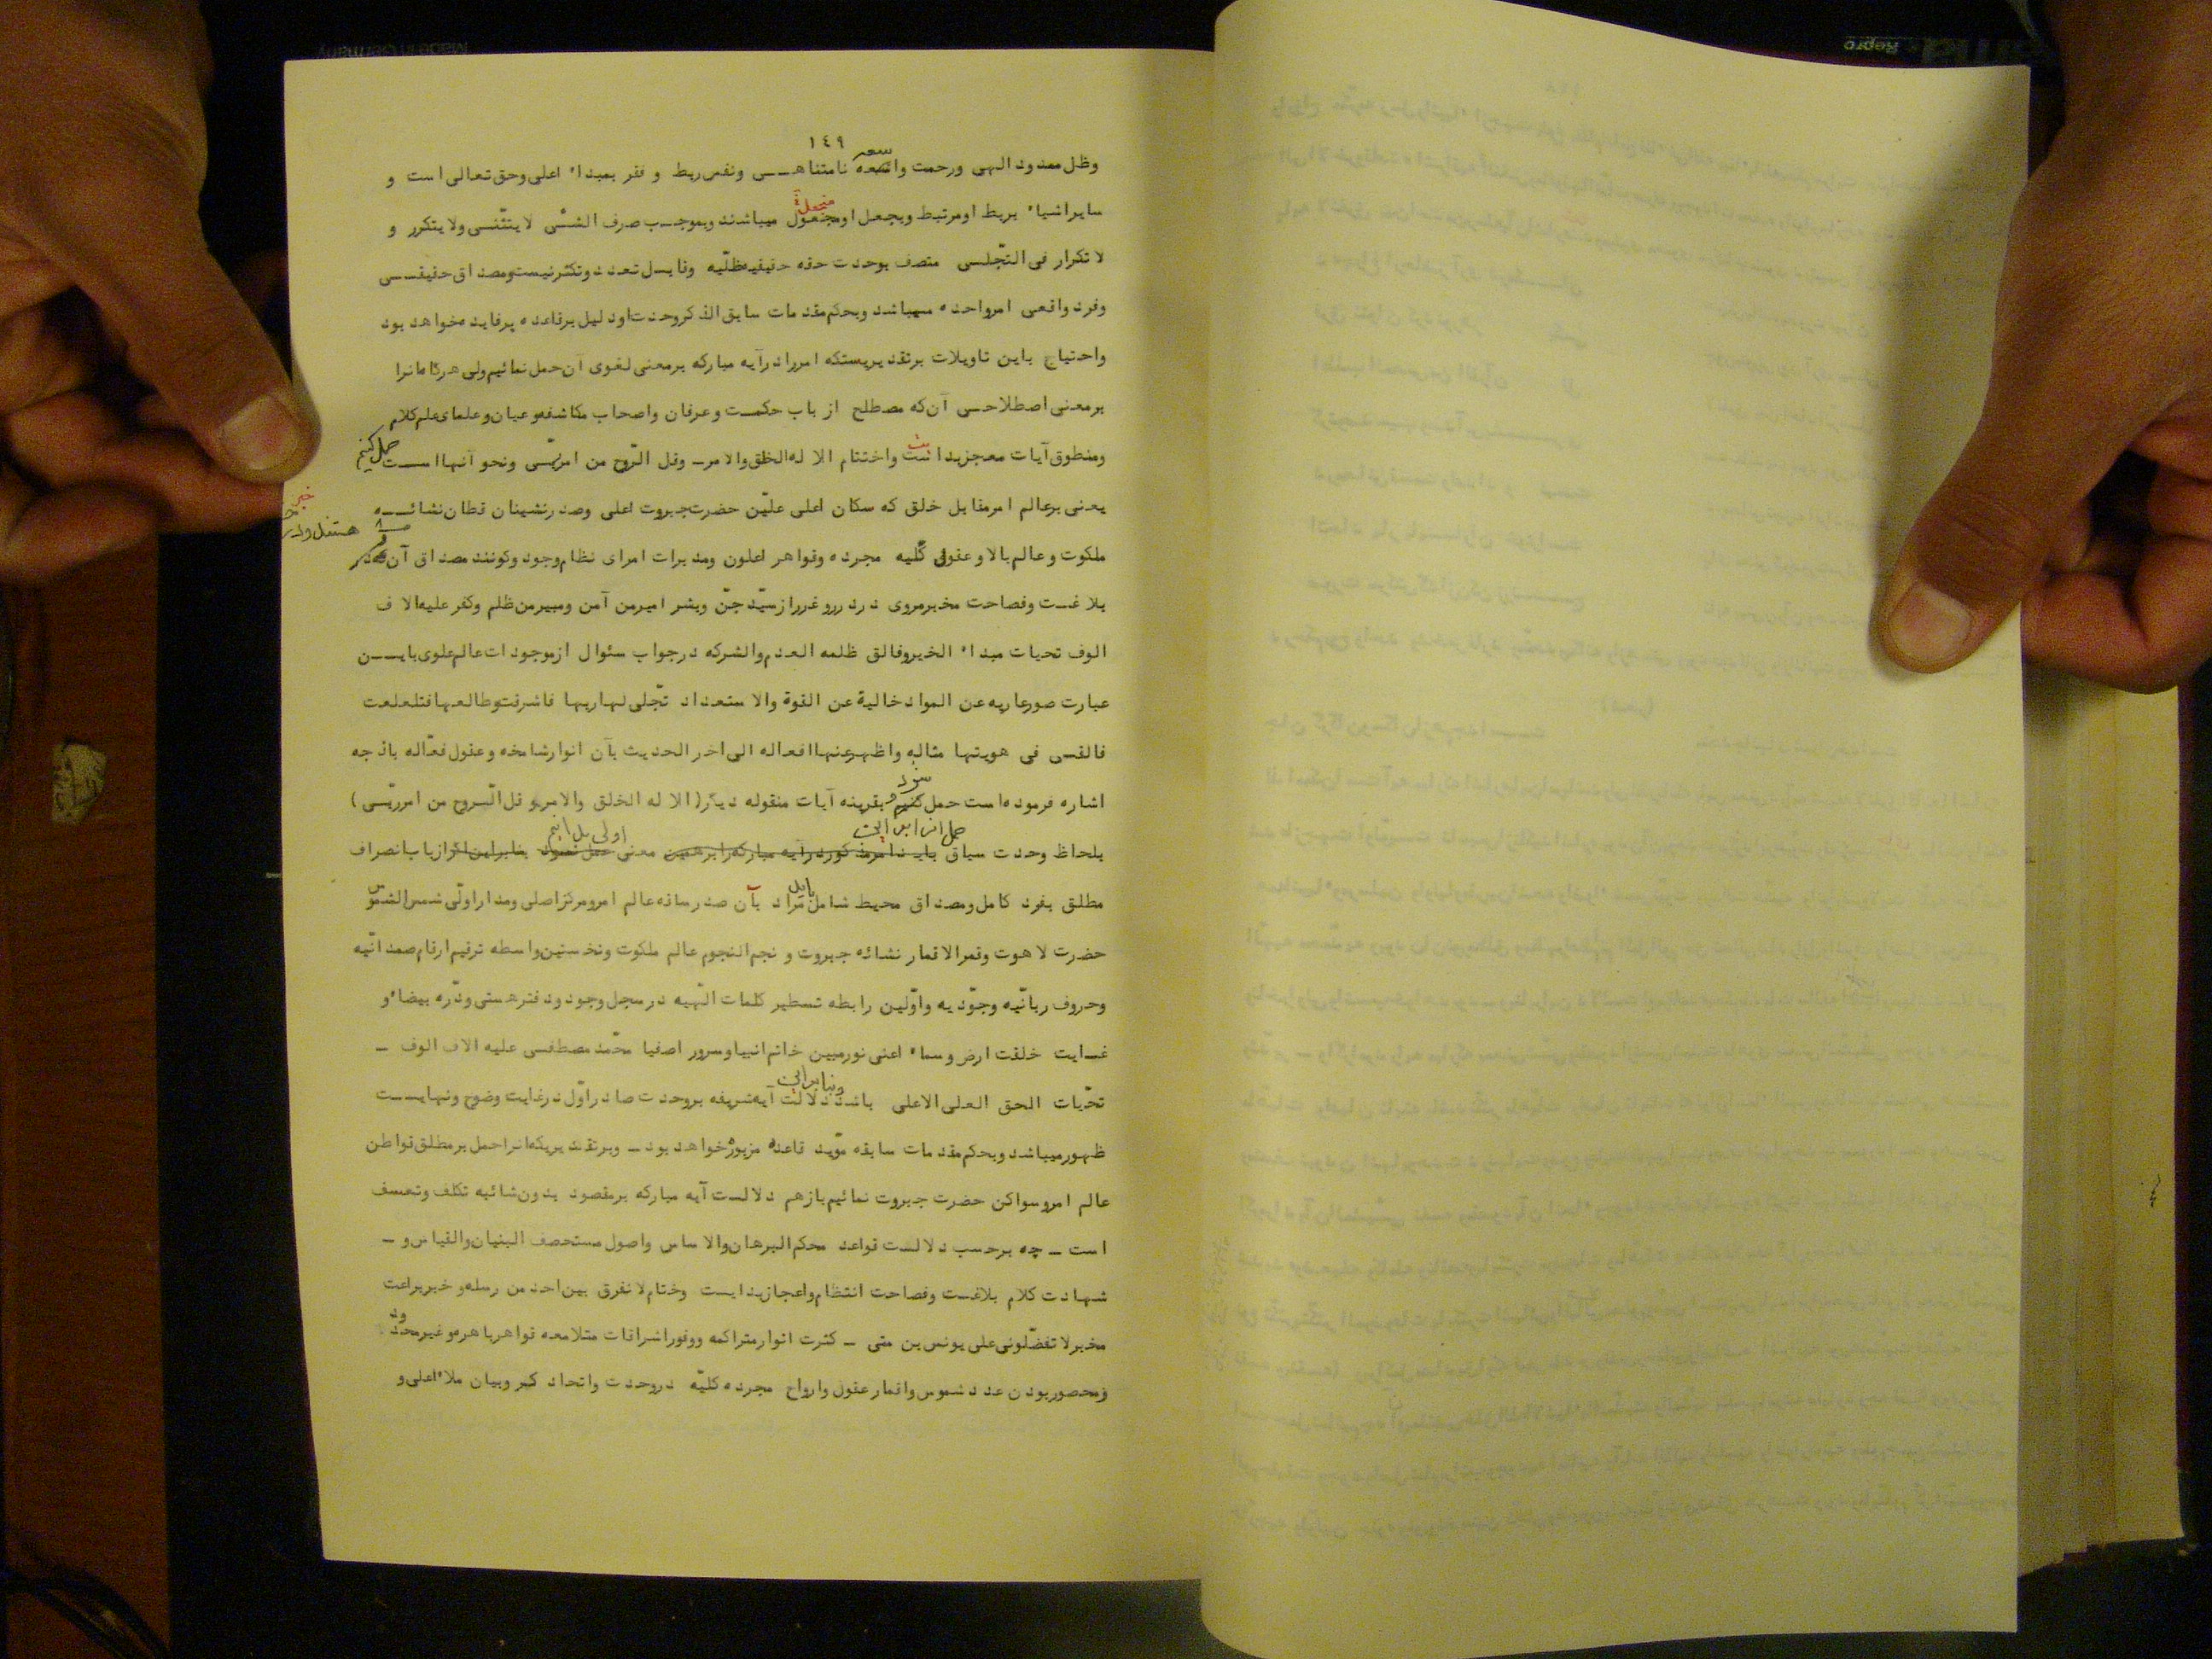 ١٤٩
وظل ممدود الهی ورحمت واسعه نامتناهـی ونفس ربط و فقر بمبداء اعلی وحق تعالی است و
سایر اشیاء بربط او مرتبط وبجعل او منجعل میباشند وبموجـب صرف الشئی لا یتثنـی ولا یتکرر و
لا تکرار فی التجّلـی متصف بوحدت حقه حقیقیه ظلّیه وقابـل تعدد وتکثر نیست ومصداق حقیقـی
وفرد واقعی امر واحده میباشد وبحکم مقدمات سابق الذکر وحدت او دلیل بر قاعده پرفایده خواهد بود
واحتیاج باین تاویلات برتقدیریستکه امر را درآیه مبارکه برمعنی لغوی آن حمل نمائیم ولی هرگاه انرا
برمعنی اصطلاحـی آن که مصطلح از باب حکمـت وعرفان واصحاب مکاشفه وعیان وعلمای علم کلام
ومنطوق آیات معجز بدایت واختتام الا له الخلق والامر ـ وقل الرّوح من امر ربّی ونحو آنها اسـت حمل کنیم
یعنی بر عالم امر مقابل خلق که سکان اعلی علیّین حضرت جبروت اعلی وصدر نشینان قطان نشائـه
ملکوت وعالم بالا وعقول کّلیه مجرده وقواهر اعلون ومدبرات امرای نظام وجود وکونند مصداق آن
هستند ودر خبر
بلاغـت وفصاحت مخبر مروی در درر وغرر از سیّد جنّ وبشر امیر من آمن ومبیر من ظلم وکفر علیه الاف
الوف تحیات مبداء الخیر وفالق ظلمه العدم والشرکه در جواب سئوال از موجودات عالم علوی بایـن
عبارت صور عاریه عن المواد خالیة عن القوة والاستعداد تجّلی لها ربها فاشرقت وطالعها فتلعلعت
فالقـی فی هویتها مثاله واظهر عنها افعاله الی اخر الحدیث بآن انوار شامخه وعقول فعّاله باذجه
اشاره فرموده است حمل شود وبقرینه آیات منقوله دیگر (الا له الخلق والامر و قل الّـروح من امر ربّـی)
بلحاظ وحدت سیاق حمل امر را بر این معنی اولی بدانیم از باب انصراف
مطلق بفرد کامل ومصداق محیط شامل باید مراد بآن صدر ساقه عالم امر ومرکز اصلی ومدار اوّلی شمس الشموس
حضرت لاهوت وقمر الاقمار نشائه جبروت و نجم النجوم عالم ملکوت ونخستین واسطه ترقیم ارقام صمدانّیه
وحروف ربانّیه وجوّدیه واوّلین رابطه تسطیر کلمات الّهیه در سجل وجود ودفتر هستی ودّره بیضاء و
غـایت خلقت ارض وسماء اعنی نور مبین خاتم انبیا وسرور اصفیا محّمد مصطفـی علیه الاف الوف ـ
تحّیات الحق العلی الاعلی باشد وبنابراین دلالت آیه شریفه بر وحدت صادر اوّل در غایت وضوح ونهایـت
ظهور میباشد وبحکم مقدمات سابقه موّید قاعده مزبوره خواهد بود ـ وبر تقدیریکه انرا حمل بر مطلق قواطن
عالم امر وسواکن حضرت جبروت نمائیم باز هم دلالـت آیه مبارکه بر مقصود بدون شائبه تکلف وتعسف
است ـ چه بر حسب دلالـت قواعد محکم البرهان والاساس واصول مستحصف البنیان والقیاس و ـ
شهادت کلام بلاغـت وفصاحت انتظام واعجاز بدایـت وختام لا نفرق بین احد من رسله و خبر براعت
مخبر لا تفضّلونی علی یونس بن متی ـ کثرت انوار متراکمه ووفور اشراقات متلامعه قواهر باهره وغیر محدود
ومحصور بودن عدد شموس واقمار عقول وارواح مجرده کلیّه در وحدت واتحاد کبر وبیان ملاء اعلی و